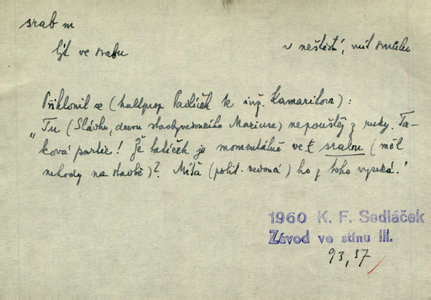 srab m
být ve srabu
v neštěstí, mít smůlu
Přiklonil se (kultprop Pavlíček k inž. Kamarilovi):
„Tu (Slávku, dceru stavbyvedoucího Mariuse) nepouštěj z ruky. Ta-
ková partie! Že tatíček je momentálně ve srabu (měl
nehody na stavbě)? Míťa (polit. vedoucí) ho z toho vyseká.“
1960 K. F. Sedláček
Závod ve stínu III.
93, 37